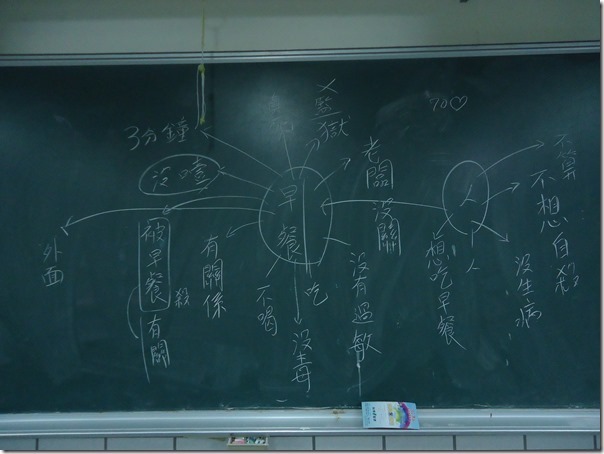 監獄
3分鐘
沒嗑
外面
被早餐殺
有關
有關係
早餐
吃
不喝
沒毒
沒有過敏
老闆沒關
人
人
想吃早餐
沒生病
不想自殺
不算